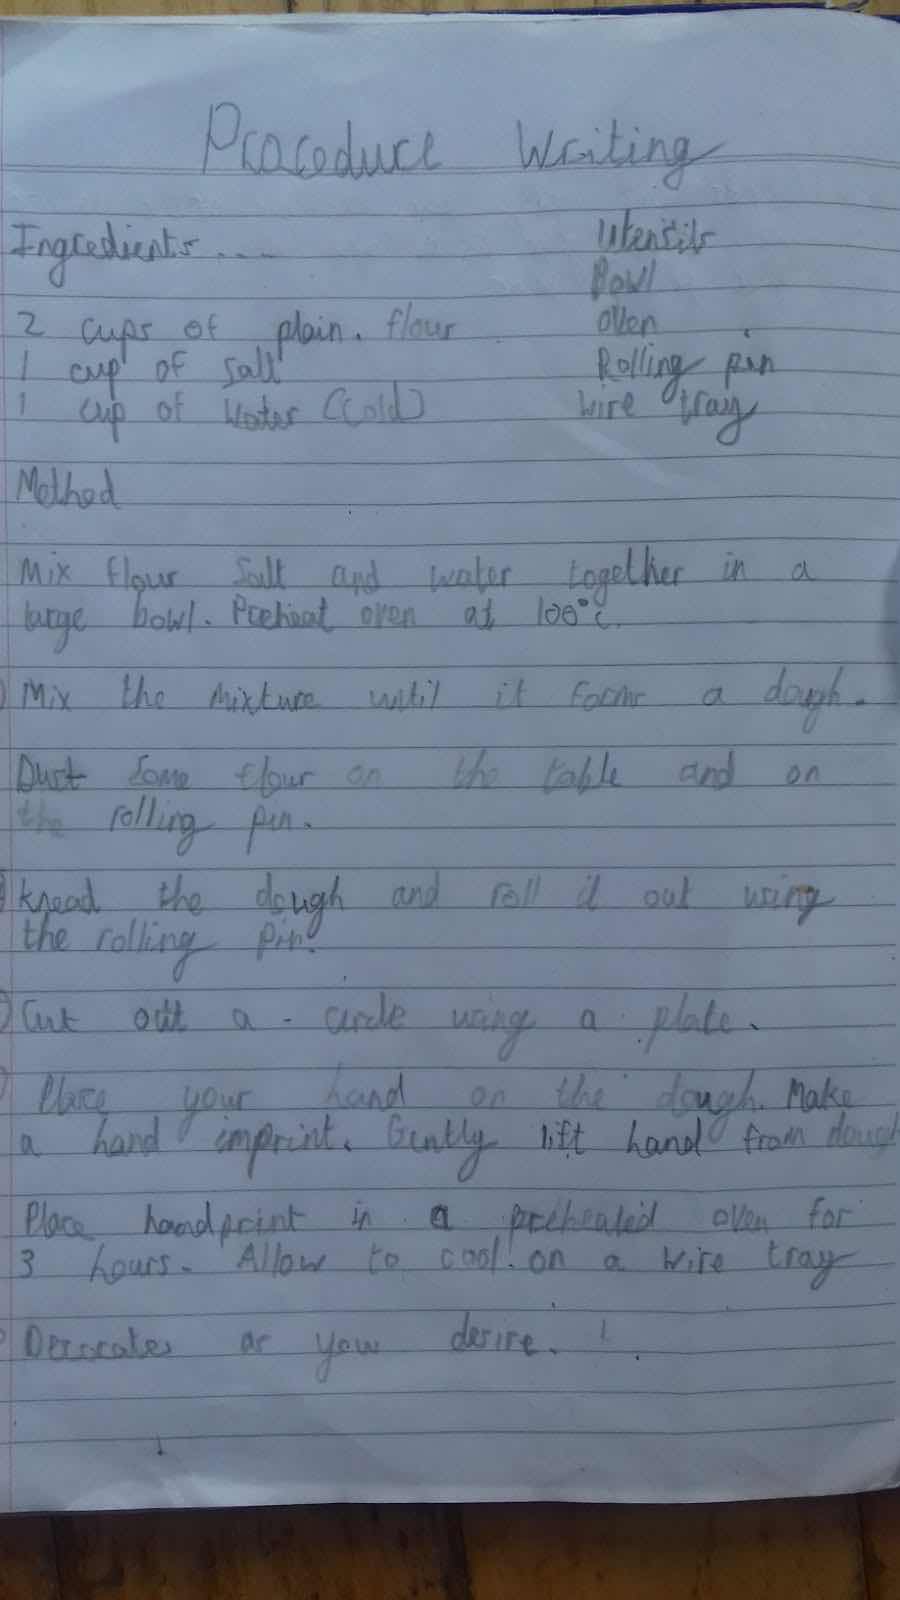 Procedure Writing
Ingredients.... Utensils
Bowl
2 cups of plain. flour oven
1 cup of salt Rolling pin
1 cup of water (cold) wire tray
Method
Mix flour salt and water together in a
large bowl. Preheat oven at 100°c.
Mix the mixture until it forms a dough.
Dust some flour on the table and on
the rolling pin.
knead the dough and roll it out using
the rolling pin.
Cut out a - circle using a plate.
Place your hand on the dough. Make
a hand imprint. Gently lift hand from dough
Place handprint in a preheated oven for
3 hours. Allow to cool. on a wire tray
as you desire. !